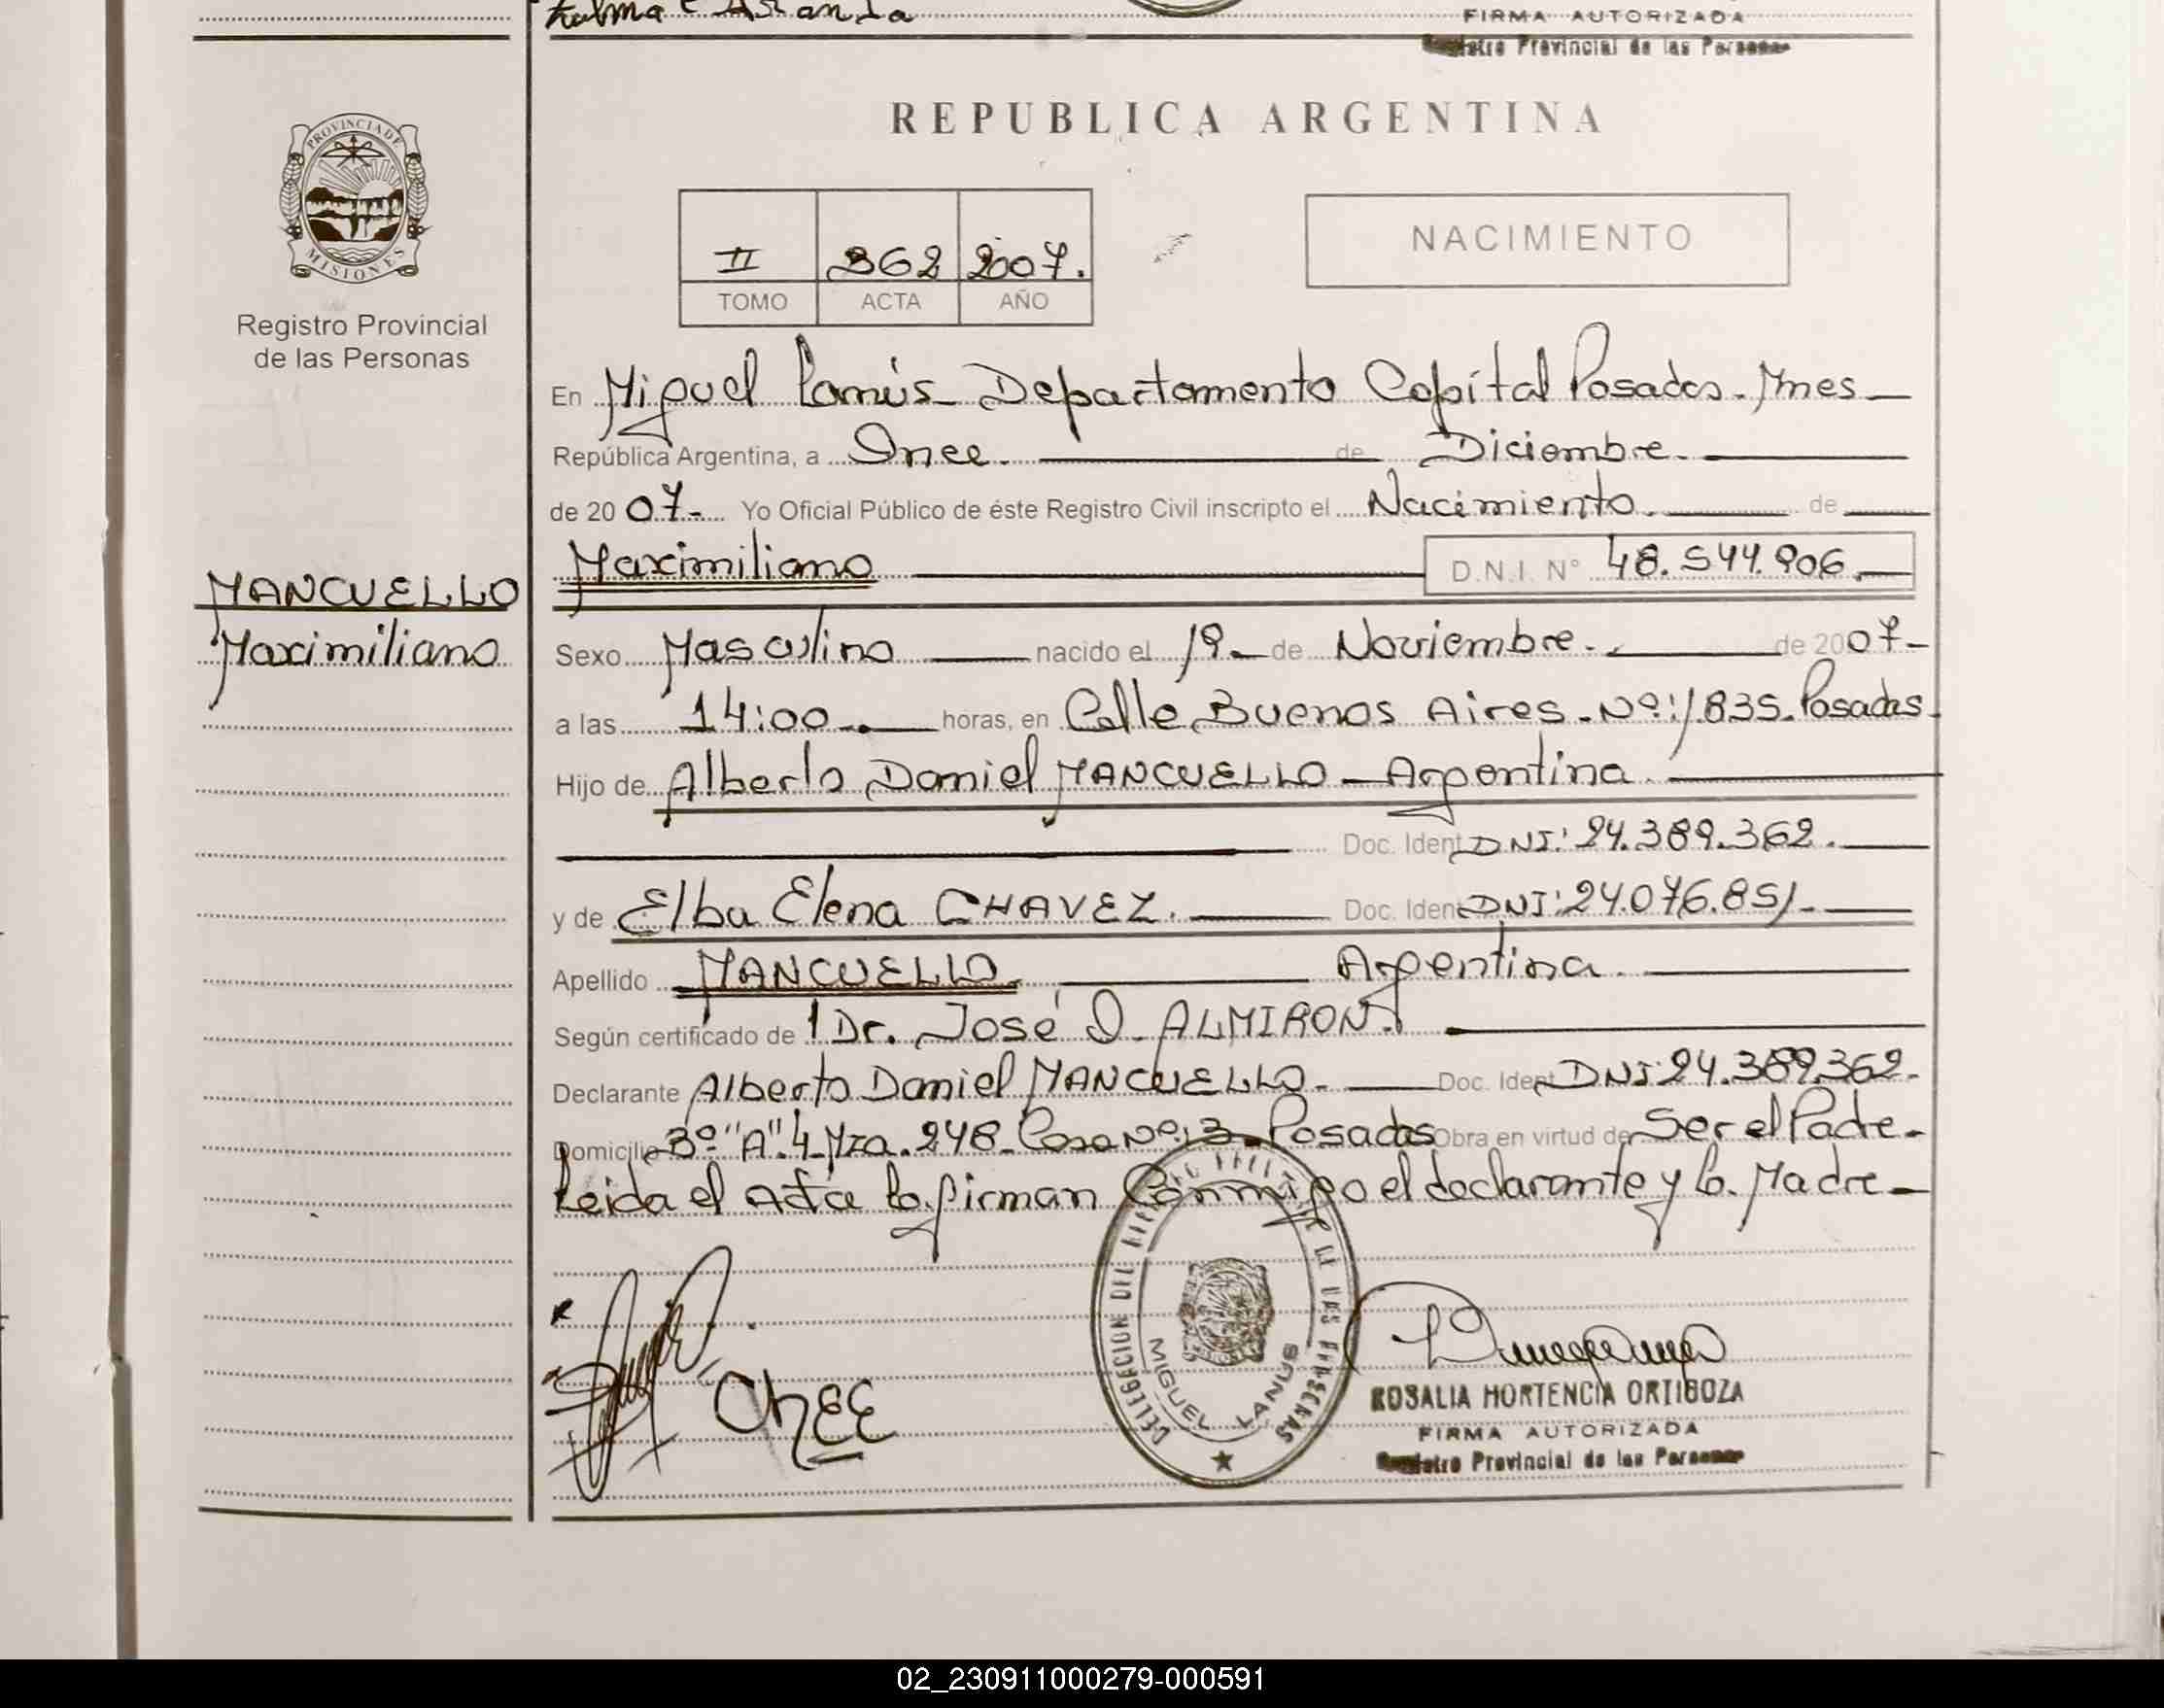 FIRMA AUTORIZADA
Provincial de las Personas
PROVINCIA DE
MISIONES
Registro Provincial
de las Personas
REPUBLICA ARGENTINA
II 362 2007.
TOMO ACTA AÑO
NACIMIENTO
En Miguel Lanús - Departamento Capital Posadas - Mnes -
República Argentina, a Once. de Diciembre.
de 20 07- Yo Oficial Público de éste Registro Civil inscripto el Nacimiento. de
MANCUELLO
Maximiliano
Maximiliano D.N.I. N° 48.544.906.
Sexo Masculino nacido el 19 - de Noviembre. de 2007-
a las 14:00 - horas, en Calle Buenos Aires - Nº: 1835. Posadas -
Hijo de Alberto Daniel MANCUELLO - Argentina.
Doc. Ident DNI: 24.389.362.
y de Elba Elena CHAVEZ. Doc. Ident DNI: 24.076.851 -
Apellido MANCUELLO. Argentina.
Según certificado de l Dr. José D. ALMIRON.
Declarante Alberto Daniel MANCUELLO. - Doc. Ident DNI 24.389.362 -
Domicilio Bº "A" 4 - Mza. 248 - Casa Nº: 3 - Posadas Obra en virtud de Ser el Padre -
Leida el Acta la firman Conmigo el declarante y la Madre -
DELEGACION DEL REGISTRO PROVINCIAL DE LAS PERSONAS
MIGUEL LANUS
ROSALIA HORTENCIA ORTIGOZA
FIRMA AUTORIZADA
Registro Provincial de las Personas
02_230911000279-000591